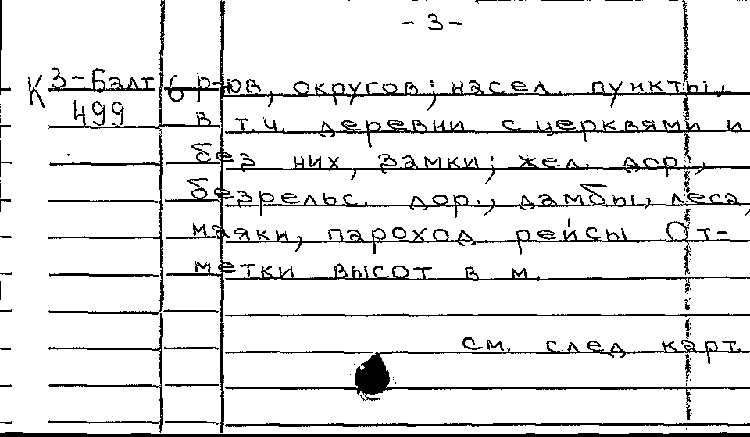 - 3 -
К 3-Балт б р-ов, округов; насел. пункты,
499 в т.ч. деревни с церквями и
без них, замки; жел. дор.,
безрельс. дор., дамбы, леса,
маяки, пароход. рейсы. От-
метки высот в м.
см. след. карт.